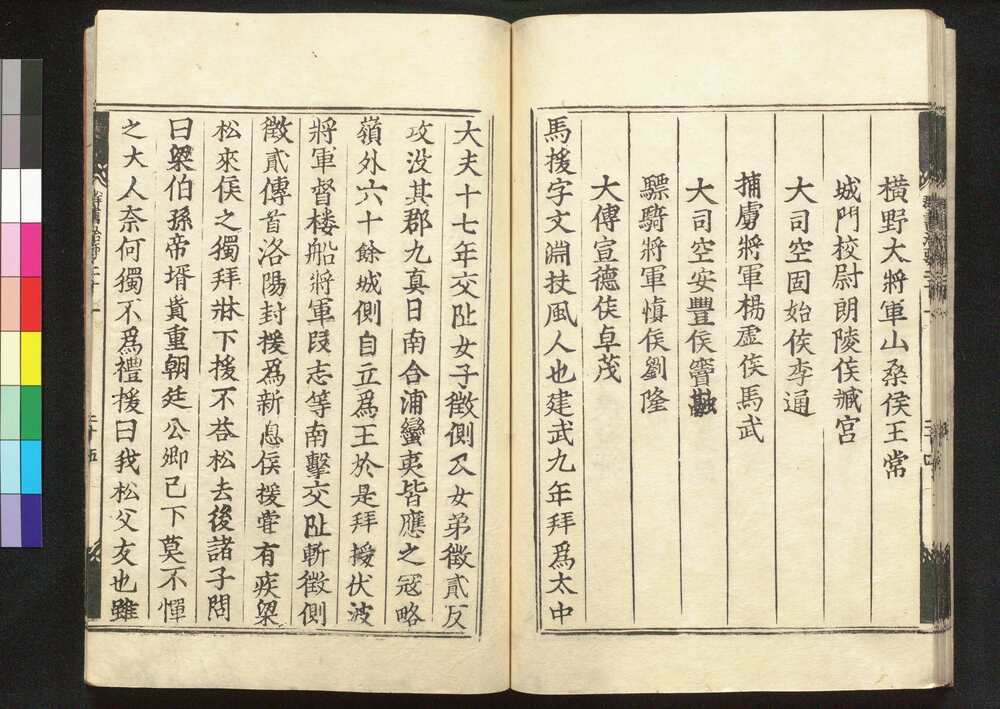 橫野大將軍山桑侯王常
城門校尉朗陵侯臧宮
大司空固始侯李通
捕虜將軍楊虛侯馬武
大司空安豐侯竇融
驃騎將軍慎侯劉隆
大傅宣德侯卓茂
馬援字文淵扶風人也建武九年拜爲太中
大夫十七年交阯女子徵側及女弟徵貳反
攻没其郡九真日南合浦蠻夷皆應之冦略
嶺外六十餘城側自立爲王於是拜援伏波
將軍督楼船將軍段志等南擊交阯斬徵側
徵貳傳首洛陽封援爲新息侯援甞有疾梁
松來侯之獨拜牀下援不荅松去後諸子問
曰梁伯孫帝壻貴重朝廷公卿已下莫不憚
之大人奈何獨不爲禮援曰我松父友也雖